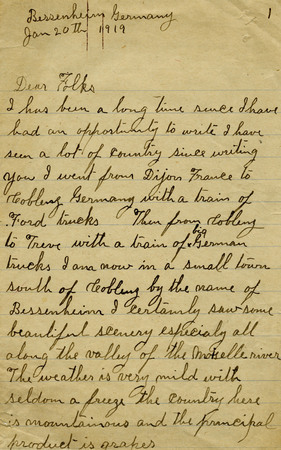 Bessenheim Germany 1
Jan 20th 1919
Dear Folks
I has been a long time since I have
had an opportunity to write I have
seen a lot of country since writing
you I went from Dijon France to
Coblenz Germany with a train of
Ford trucks Then from Coblenz
to Treve with a train of big German
trucks I am now in a small town
south of Coblenz by the name of
Bessenheim I certainly saw some
beautiful scenery especialy all
along the valley of the Moselle river
The weather is very mild with
seldom a freeze the country here
is mountainous and the principal
product is grapes